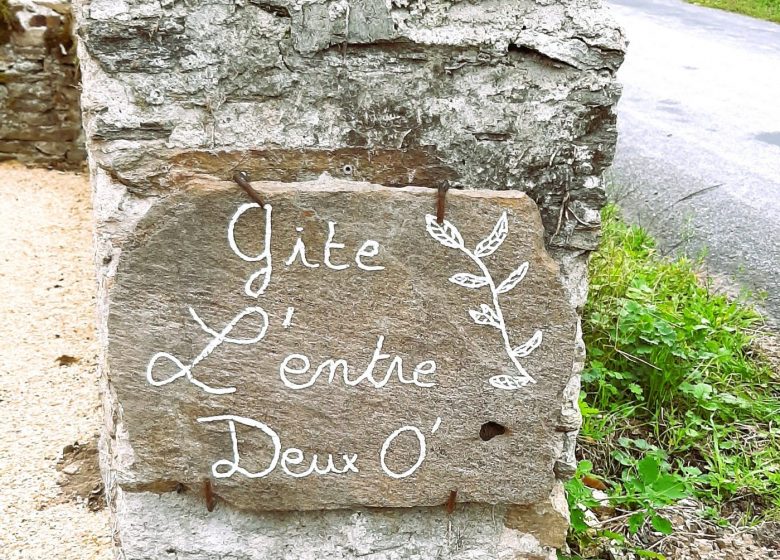 Gite
L'entre
Deux O'